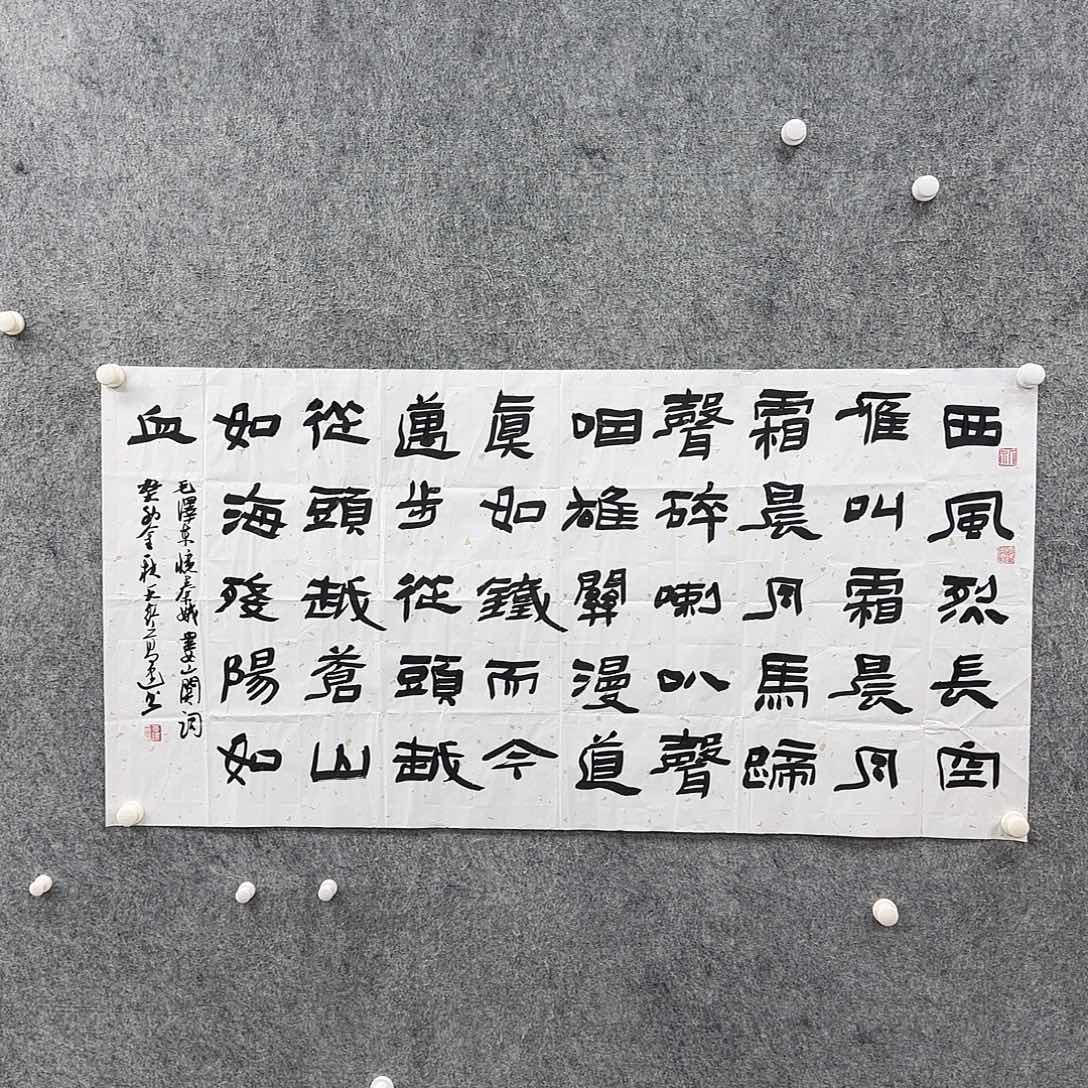 西風烈長空
雁叫霜晨月
霜晨月馬蹄
聲碎喇叭聲
咽雄關漫道
眞如鐵而今
邁步從頭越
從頭越蒼山
如海殘陽如
血
毛澤東憶秦娥婁山關詞
癸卯金秋